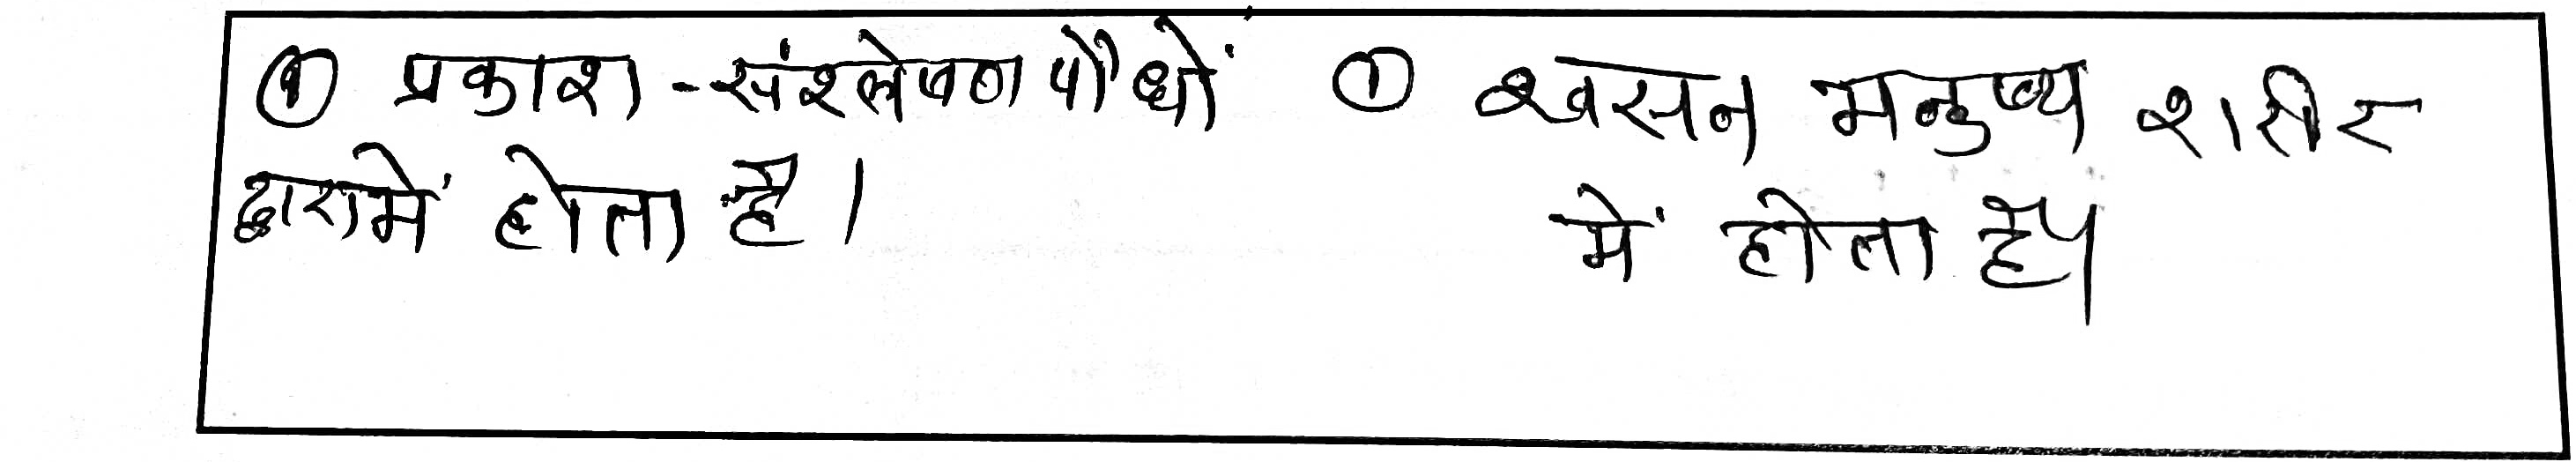 ① प्रकाश-संश्लेषण पौधों
द्वारामें होता है।
① श्वसन मनुष्य शरीर
में होता है।